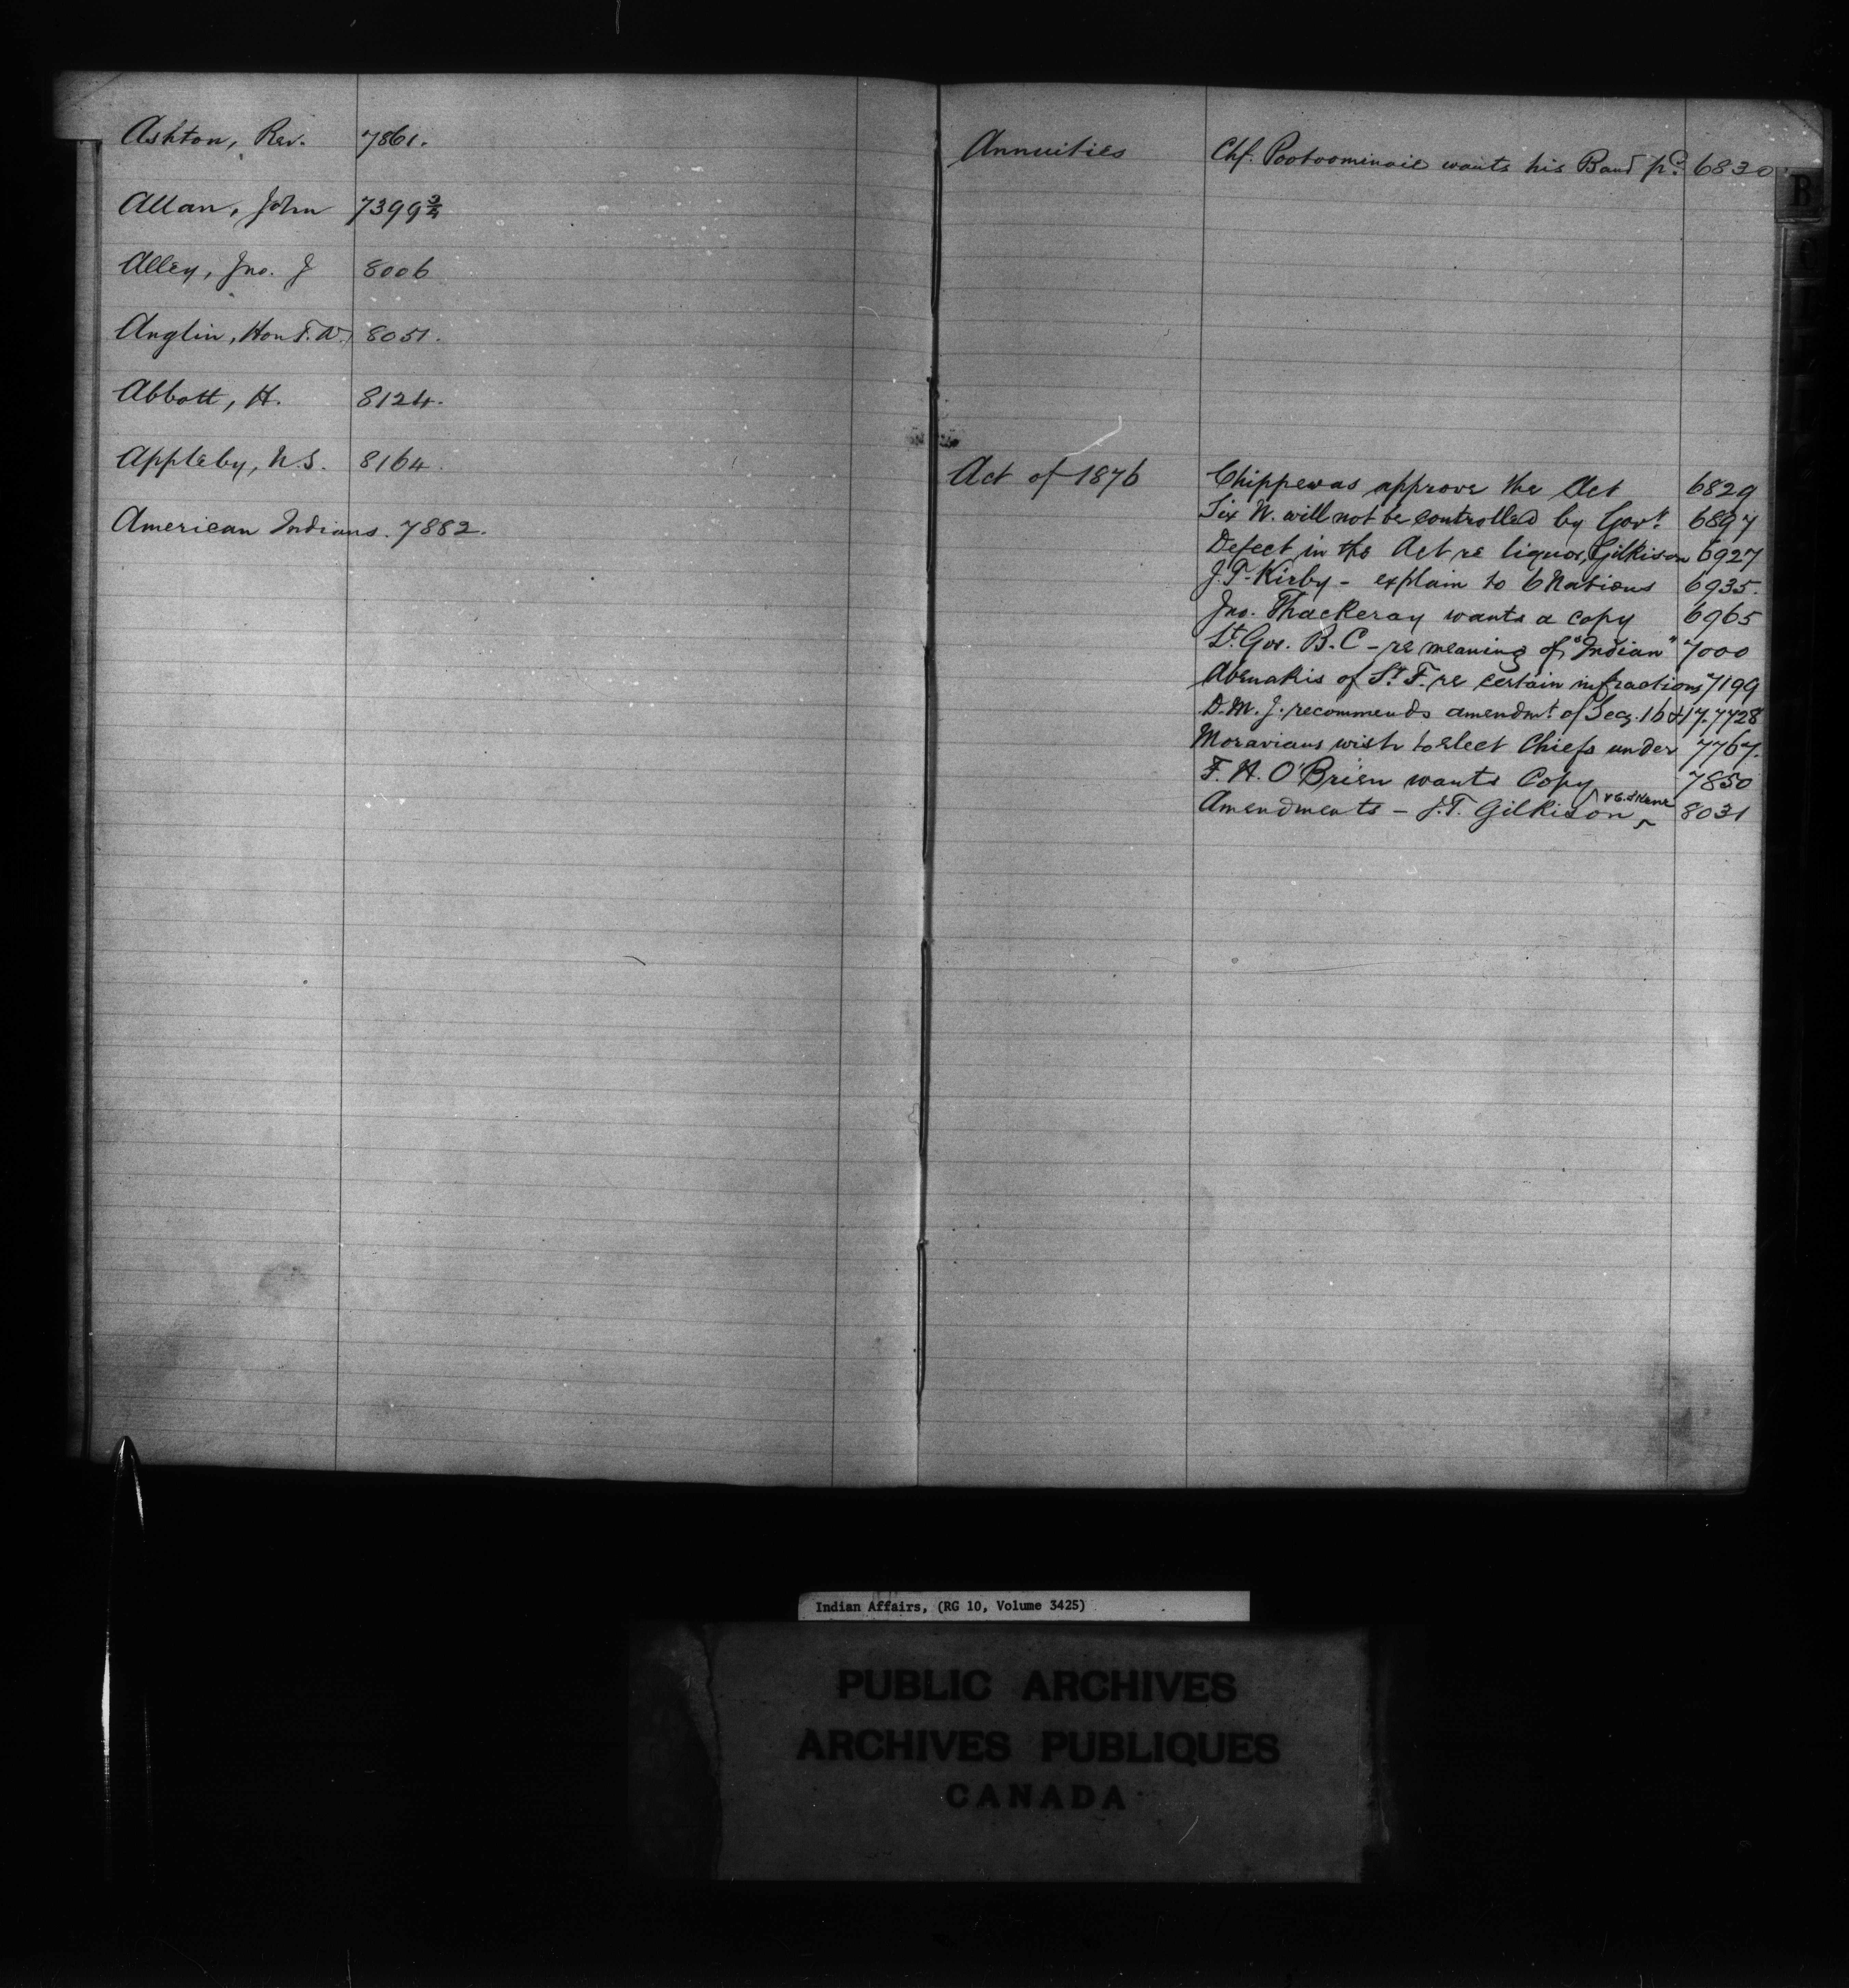 Ashton, Rev. 7861.
Allan, John 7399 3/4
Alley, Jno. J 8006
Anglin, Hon T. W. 8051.
Abbott, H. 8124.
Appleby, N.S. 8164.
American Indians. 7882.
Annuities Chf. Pootoominaie wants his Band pd. 6830
B
Act of 1876 Chippewas approve the Act 6829
Six N. will not be controlled by Govt. 6897
Defect in the Act re liquor, Gilkison 6927
J. P. Kirby - explain to 6 Nations 6935.
Jno. Thackeray wants a copy 6965
Lt. Gov. B. C - re meaning of "Indian" 7000
Abenakis of St. F. re certain infractions 7199
D. M. J. recommends amendmt. of Secs. 16 & 17. 7728
Moravians wish to elect Chiefs under 7767.
F. H. O'Brien wants Copy 7850
Amendments - J. T. Gilkison & E. Skene 8031
Indian Affairs, (RG 10, Volume 3425)
PUBLIC ARCHIVES
ARCHIVES PUBLIQUES
CANADA